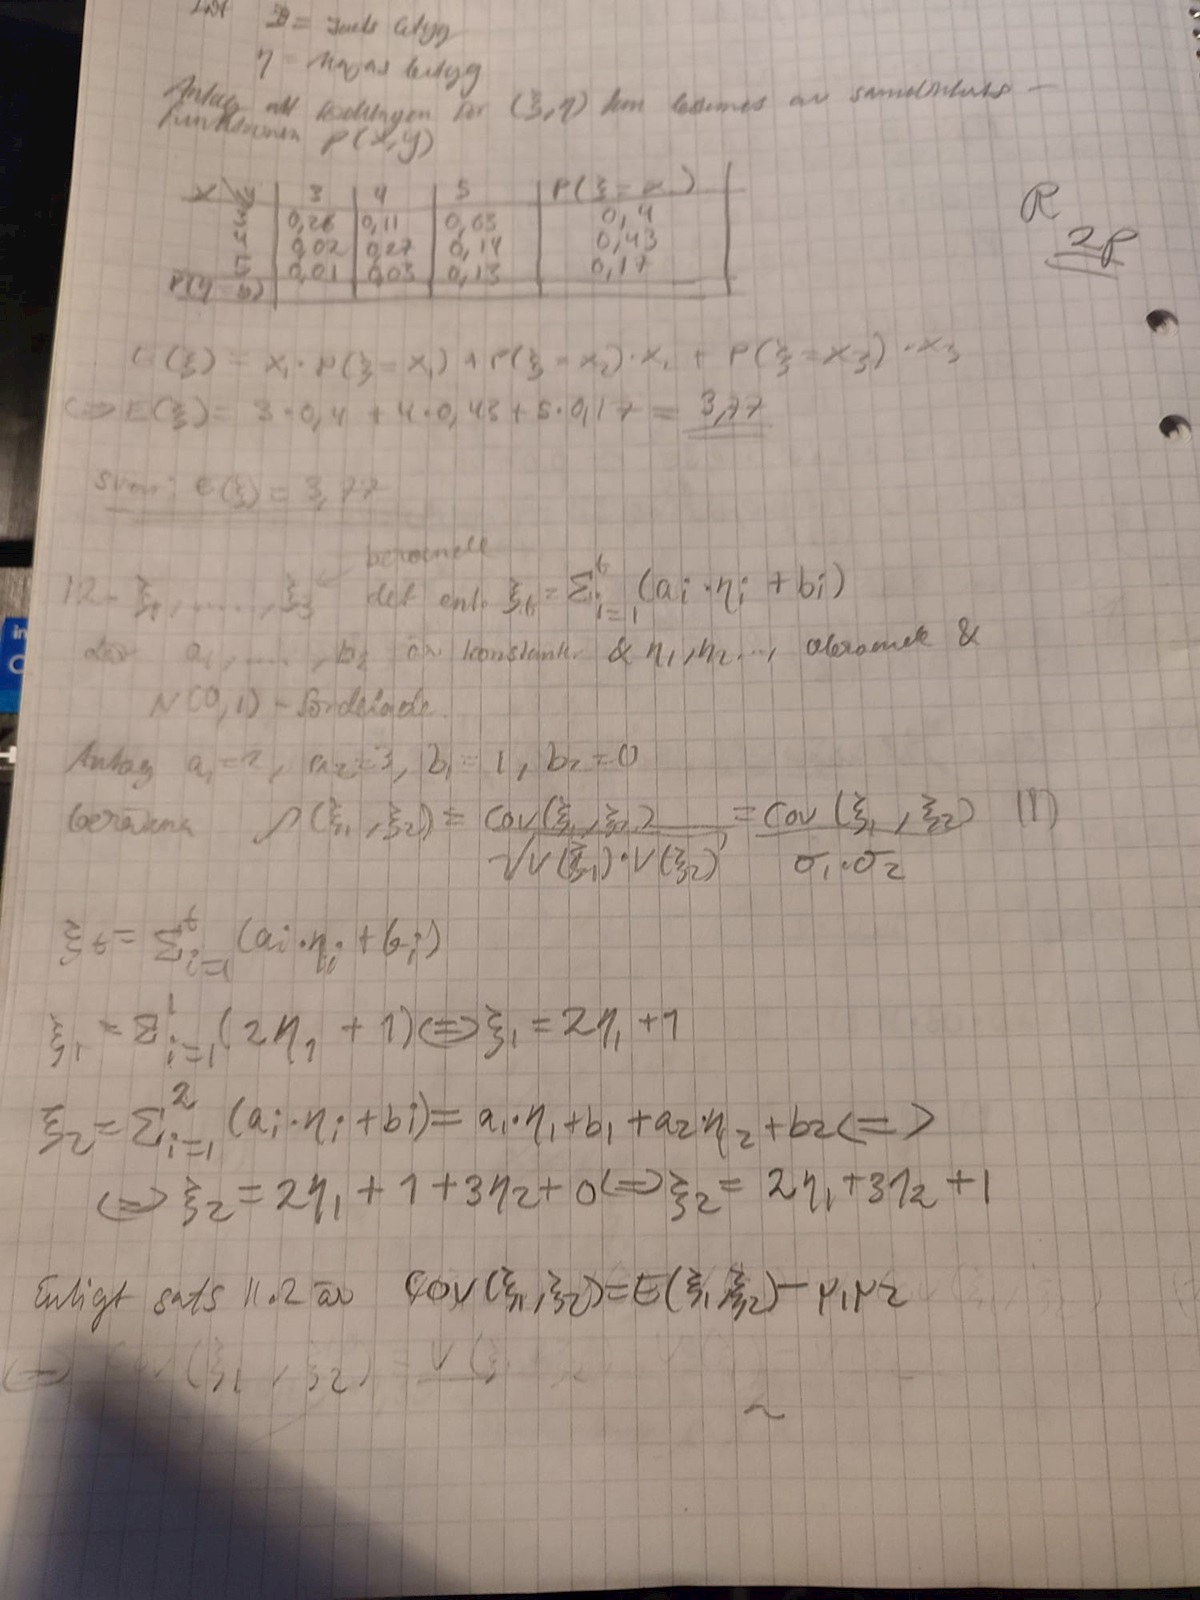 Låt ξ = Joels betyg
η = Majas betyg
Antag att fördelningen för (ξ,η) kan bestämmas av sannolikhets-
funktionen p(x,y)
x\y 3 4 5 P(ξ=x)
3 0,26 0,11 0,03 0,4
4 0,02 0,27 0,14 0,43
5 0,01 0,03 0,13 0,17
P(η=y)
R
2P
E(ξ) = x₁·P(ξ=x₁) + P(ξ=x₂)·x₂ + P(ξ=x₃)·x₃
<=> E(ξ) = 3·0,4 + 4·0,43 + 5·0,17 = 3,77
Svar: E(ξ) = 3,77
beroende
12. ξ₁, ....., ξ₃ det enl. ξt = Σᵗi=1 (ai·ηi + bi)
där a₁, ...., b₂ är konstant. & η₁, η₂ ..., oberoende &
N(0,1) - fördelade.
Antag a₁=2, a₂=3, b₁=1, b₂=0
beräkna ρ(ξ₁,ξ₂) = Cov(ξ₁,ξ₂)/√V(ξ₁)·V(ξ₂) = Cov(ξ₁,ξ₂)/σ₁·σ₂ (1)
ξt = Σᵗi=1 (ai·ηi + bi)
ξ₁ = Σ¹i=1 (2η₁ + 1) <=> ξ₁ = 2η₁ + 1
ξ₂ = Σ²i=1 (ai·ηi + bi) = a₁·η₁ + b₁ + a₂·η₂ + b₂ <=>
<=> ξ₂ = 2η₁ + 1 + 3η₂ + 0 <=> ξ₂ = 2η₁ + 3η₂ + 1
Enligt sats 11.2 är Cov(ξ₁,ξ₂) = E(ξ₁ξ₂) - μ₁μ₂